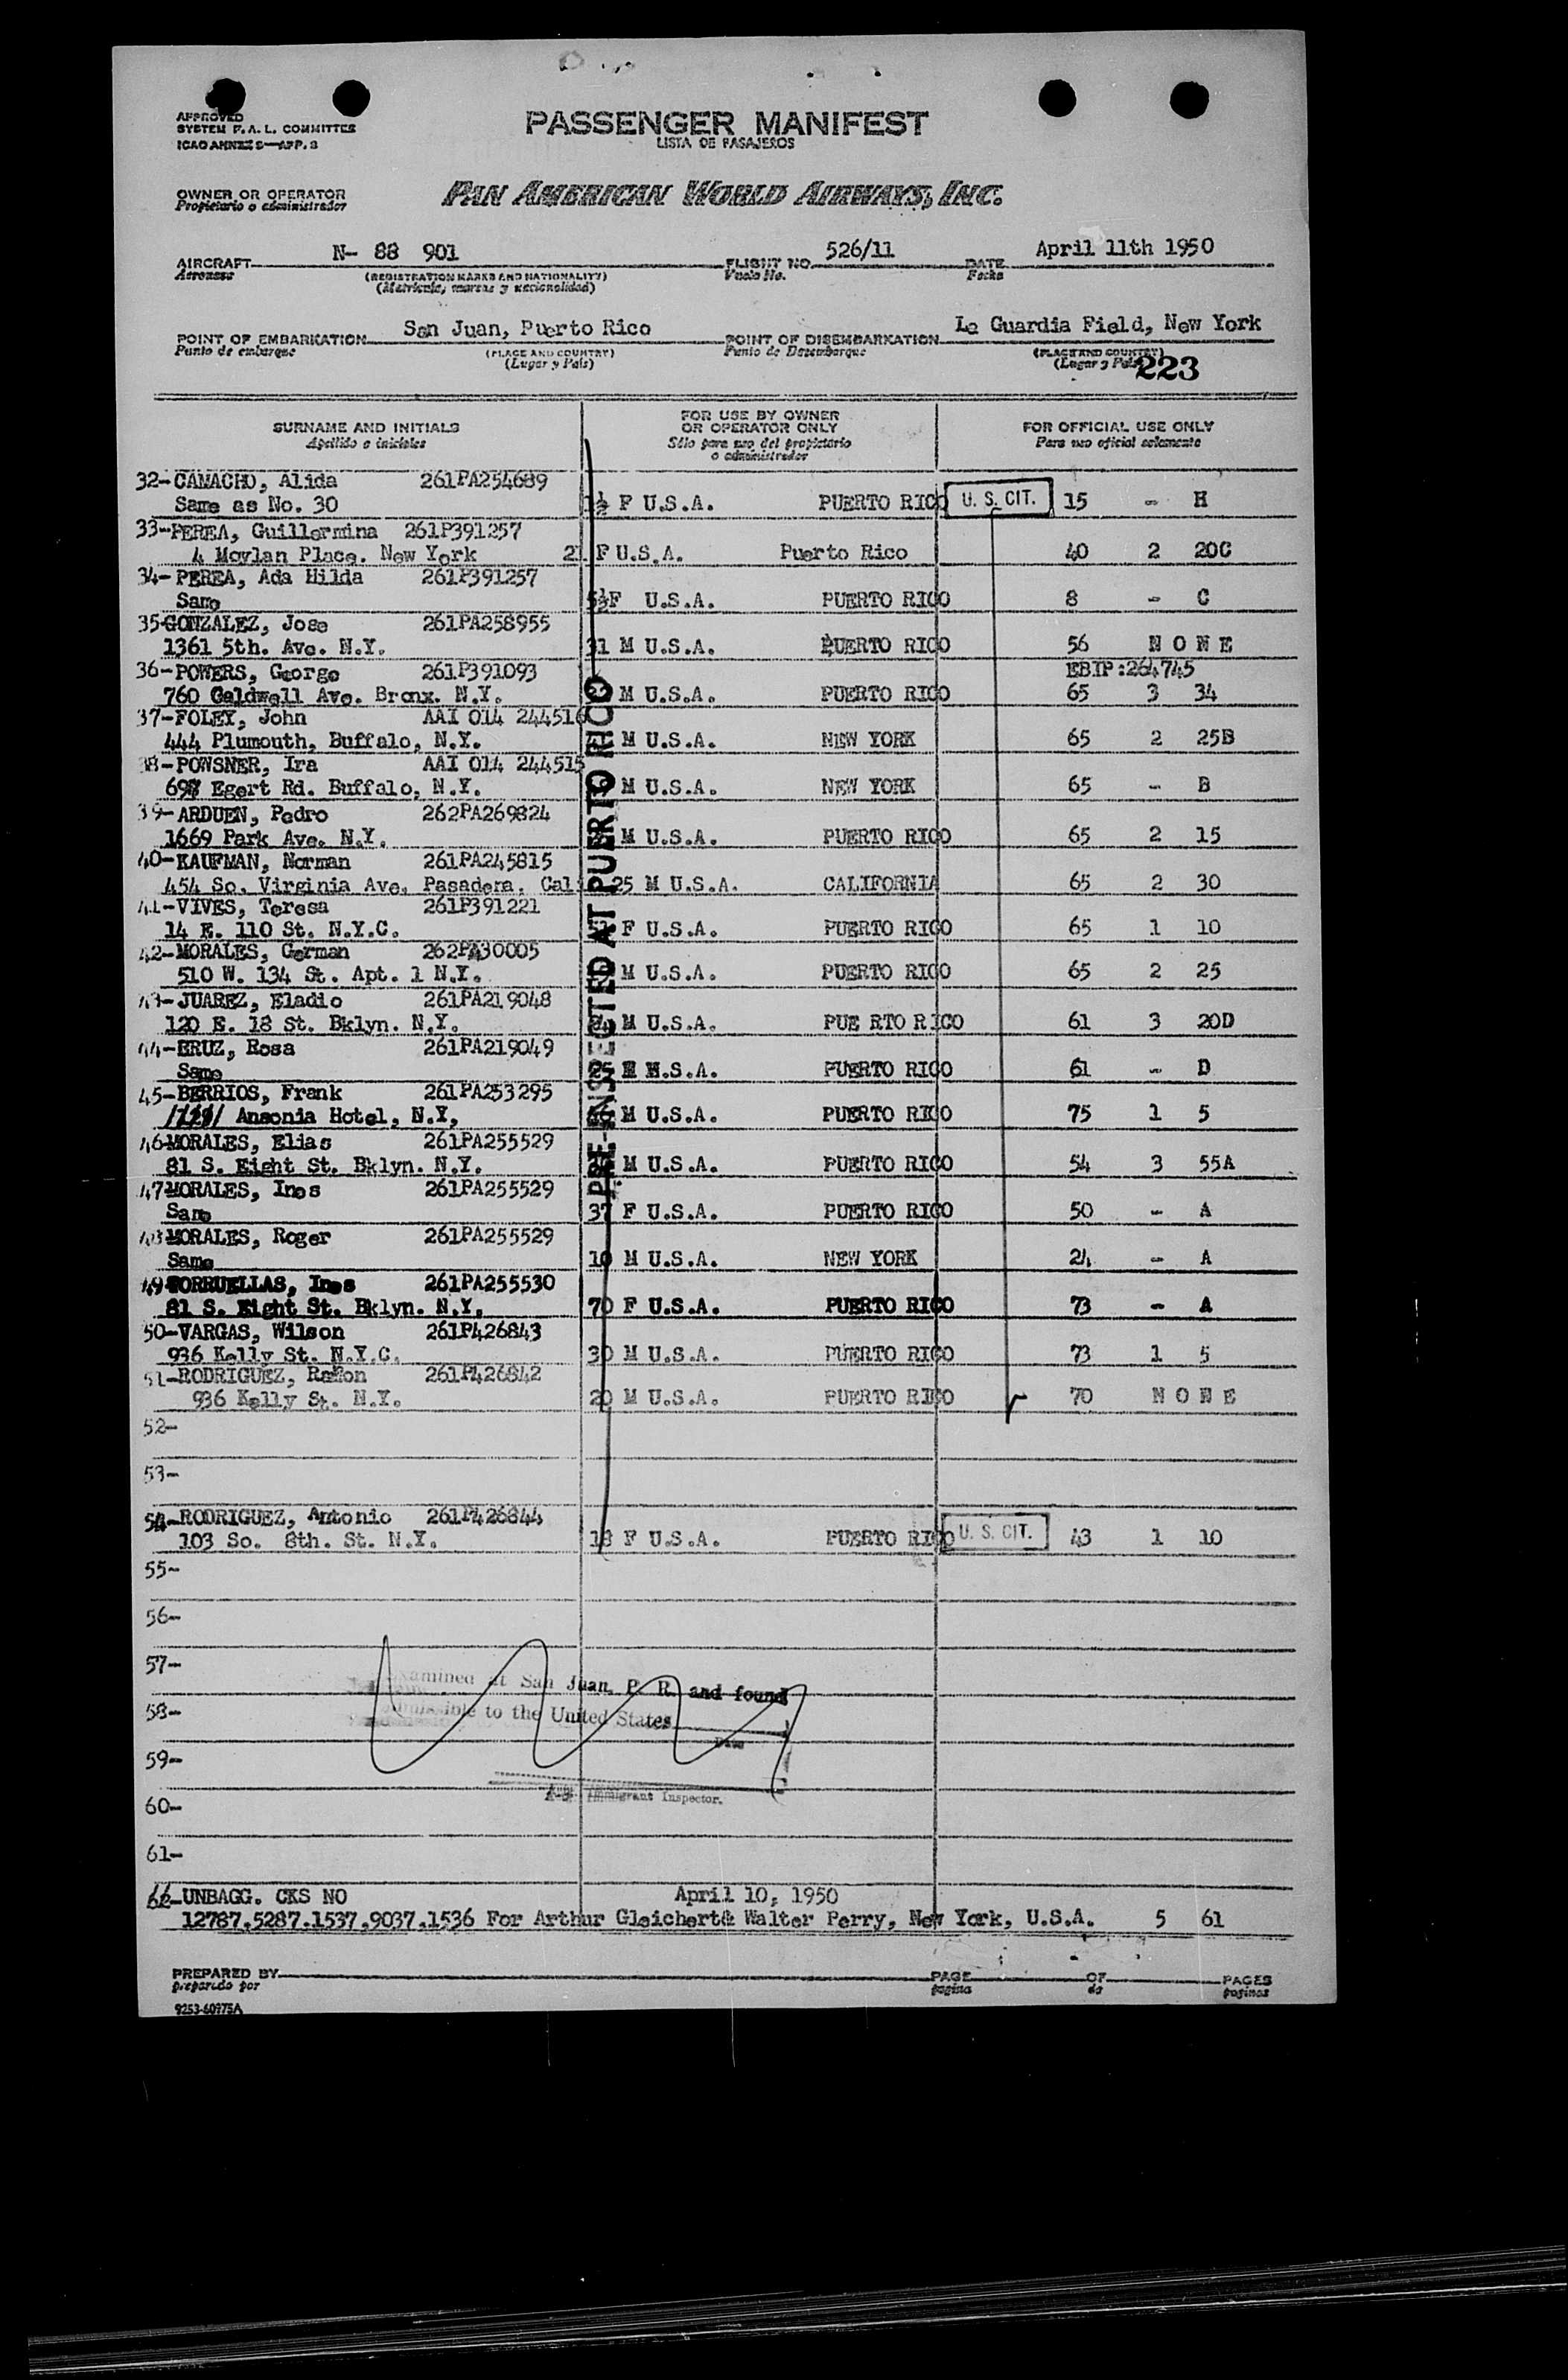 APPROVED
SYSTEM F. A. L. COMMITTEE
ICAO ANNEX 9—APP. 3
PASSENGER MANIFEST
LISTA DE PASAJEROS
OWNER OR OPERATOR
Propietario o administrador
PAN AMERICAN WORLD AIRWAYS, INC.
AIRCRAFT N- 88 901 FLIGHT NO. 526/11 DATE April 11th 1950
Aeronave (REGISTRATION MARKS AND NATIONALITY) Vuelo No. Fecha
(Matrícula, marcas y nacionalidad)
POINT OF EMBARKATION San Juan, Puerto Rico POINT OF DISEMBARKATION La Guardia Field, New York
Punto de embarque (PLACE AND COUNTRY) Punto de Desembarque (PLACE AND COUNTRY)
(Lugar y País) (Lugar y País) 223
SURNAME AND INITIALS FOR USE BY OWNER OR OPERATOR ONLY FOR OFFICIAL USE ONLY
Apellido e iniciales Sólo para uso del propietario o administrador Para uso oficial solamente
32-CAMACHO, Alida 261PA254689
Same as No. 30 1½ F U.S.A. PUERTO RICO U. S. CIT. 15 - H
33-PEREA, Guillermina 261P391257
4 Moylan Place. New York 21 F U.S.A. Puerto Rico 40 2 20C
34- PEREA, Ada Hilda 261P391257
Same 5½F U.S.A. PUERTO RICO 8 - C
35-GONZALEZ, Jose 261PA258955
1361 5th. Ave. N.Y. 31 M U.S.A. PUERTO RICO 56 N O N E
36-POWERS, George 261P391093 EBIP:264745
760 Caldwell Ave. Bronx. N.Y. M U.S.A. PUERTO RICO 65 3 34
37-FOLEY, John AAI 014 244516
444 Plumouth, Buffalo, N.Y. M U.S.A. NEW YORK 65 2 25B
38-POWSNER, Ira AAI 014 244515
698 Egert Rd. Buffalo, N.Y. M U.S.A. NEW YORK 65 - B
39-ARDUEN, Pedro 262PA269824
1669 Park Ave. N.Y. M U.S.A. PUERTO RICO 65 2 15
40-KAUFMAN, Norman 261PA245815
454 So. Virginia Ave. Pasadena. Calif 25 M U.S.A. CALIFORNIA 65 2 30
41-VIVES, Teresa 261P391221
14 E. 110 St. N.Y.C. F U.S.A. PUERTO RICO 65 1 10
42-MORALES, German 262PA30005
510 W. 134 St. Apt. 1 N.Y. M U.S.A. PUERTO RICO 65 2 25
43-JUAREZ, Eladio 261PA219048
120 E. 18 St. Bklyn. N.Y. M U.S.A. PUE RTO R ICO 61 3 20D
44-ERUZ, Rosa 261PA219049
Same 25 U.S.A. PUERTO RICO 61 - D
45-BERRIOS, Frank 261PA253295
Ansonia Hotel, N.Y. M U.S.A. PUERTO RICO 75 1 5
46-MORALES, Elias 261PA255529
81 S. Eight St. Bklyn. N.Y. M U.S.A. PUERTO RICO 54 3 55A
47-MORALES, Ines 261PA255529
Same 37 F U.S.A. PUERTO RICO 50 - A
48-MORALES, Roger 261PA255529
Same 10 M U.S.A. NEW YORK 24 - A
49-TORRUELLAS, Ines 261PA255530
81 S. Eight St. Bklyn. N.Y. 70 F U.S.A. PUERTO RICO 73 - A
50-VARGAS, Wilson 261P426843
936 Kelly St. N.Y.C. 30 M U.S.A. PUERTO RICO 73 1 5
51-RODRIGUEZ, Ramon 261P426842
936 Kelly St. N.Y. 20 M U.S.A. PUERTO RICO 70 N O N E
PRE-INSPECTED AT PUERTO RICO
52-
53-
54-RODRIGUEZ, Antonio 261P426844
103 So. 8th. St. N.Y. 18 F U.S.A. PUERTO RICO U. S. CIT. 43 1 10
55-
56-
57-
Examined at San Juan, P. R. and found
58-
admissible to the United States
Date
59-
Immigrant Inspector.
60-
61-
62-UNBAGG. CKS NO April 10, 1950
12787.5287.1537.9037.1536 For Arthur Gleichert& Walter Perry, New York, U.S.A. 5 61
PREPARED BY PAGE OF PAGES
preparado por pagina de paginas
9253-60775A